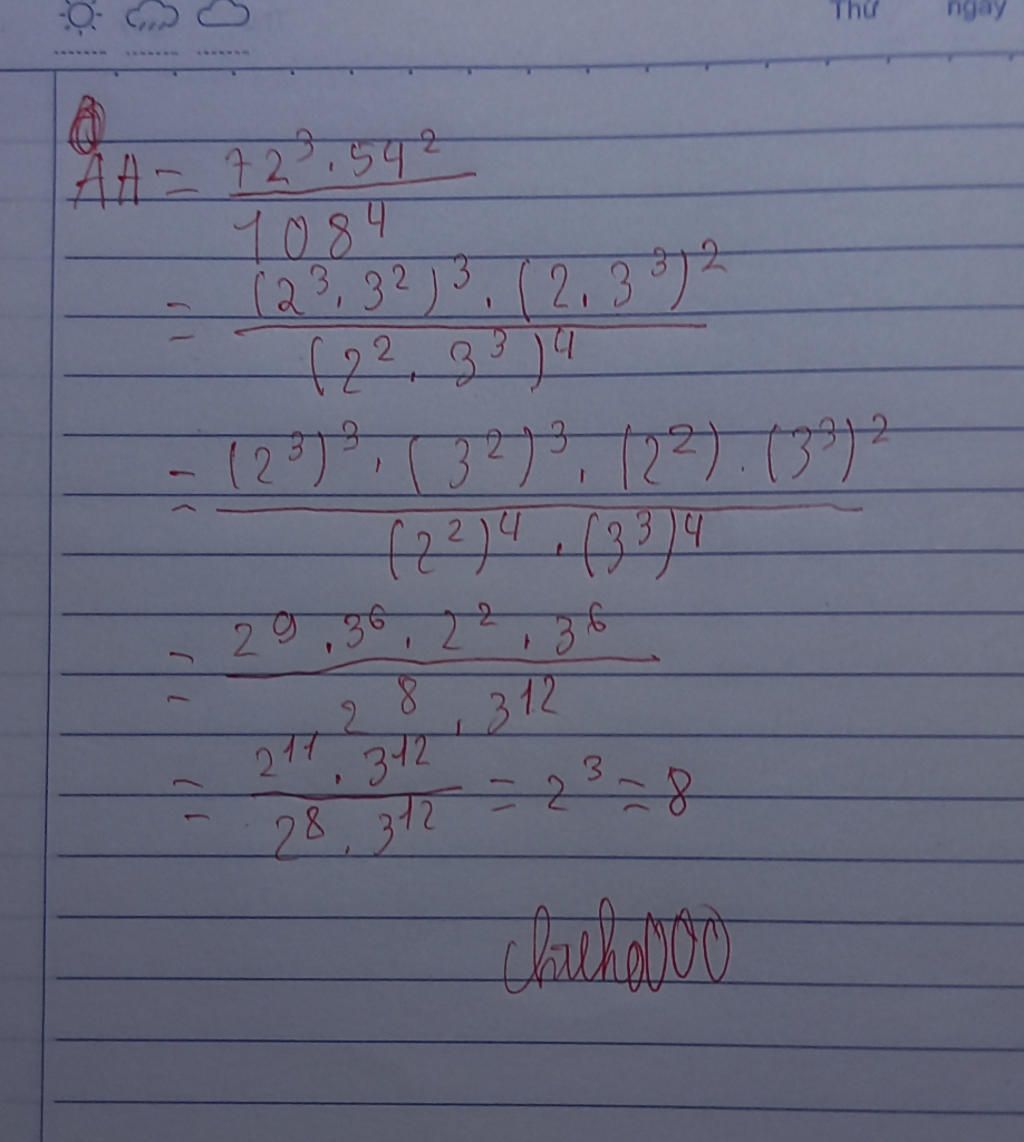 Thứ ngày
A A = 72³ . 54² / 108⁴
= (2³ . 3²)³ . (2 . 3³)² / (2² . 3³)⁴
= (2³)³ . (3²)³ . (2²) . (3³)² / (2²)⁴ . (3³)⁴
= 2⁹ . 3⁶ . 2² . 3⁶ / 2⁸ . 3¹²
= 2¹¹ . 3¹² / 2⁸ . 3¹² = 2³ = 8